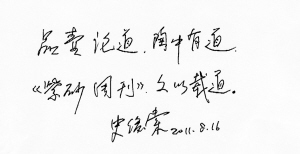 品壶论道，陶中有道，
《紫砂周刊》，文以载道。
史俊棠 2011.8.16